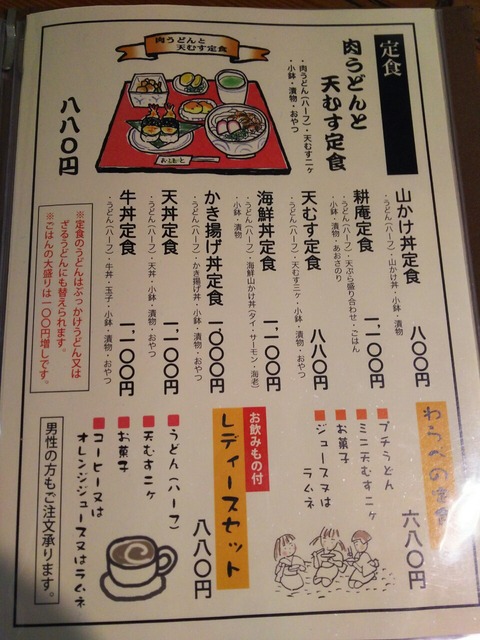 定食
肉うどんと
天むす定食
・肉うどん(ハーフ)・天むす二ヶ
・小鉢・漬物・おやつ
肉うどんと
天むす定食
八八〇円
山かけ丼定食 八〇〇円
・うどん(ハーフ)・山かけ丼・小鉢・漬物
耕庵定食 一、一〇〇円
・うどん(ハーフ)・天ぷら盛り合わせ・ごはん
・小鉢・漬物・あおさのり
天むす定食 八八〇円
・うどん(ハーフ)・天むす三ヶ・小鉢・漬物・おやつ
海鮮丼定食 一、一〇〇円
・うどん(ハーフ)・海鮮山かけ丼(タイ・サーモン・海老)
・小鉢・漬物
かき揚げ丼定食 一、〇〇〇円
・うどん(ハーフ)・かき揚げ丼・小鉢・漬物・おやつ
天丼定食 一、一〇〇円
・うどん(ハーフ)・天丼・小鉢・漬物・おやつ
牛丼定食 一、一〇〇円
・うどん(ハーフ)・牛丼・玉子・小鉢・漬物・おやつ
※定食のうどんはぶっかけうどん又は
ざるうどんにも替えられます。
※ごはんの大盛りは一〇〇円増しです。
わらべの定食 六八〇円
プチうどん
ミニ天むす二ヶ
お菓子
ジュース又は
ラムネ
お飲みもの付
レディースセット 八八〇円
うどん(ハーフ)
天むす二ヶ
お菓子
コーヒー又は
オレンジジュース又はラムネ
男性の方もご注文承ります。